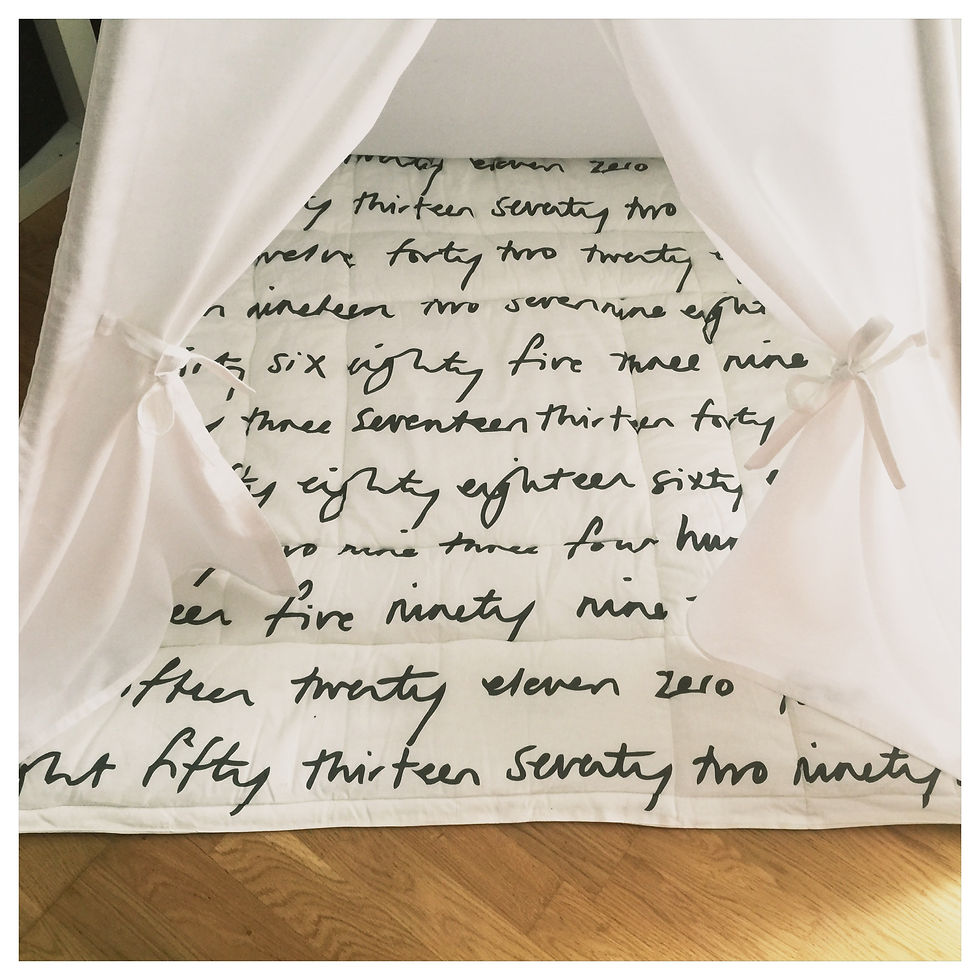 twenty eleven zero
thirteen seventy two
forty two twenty
nineteen two seven nine eight
six eighty five three nine
three seventeen thirteen forty
eighty eighteen sixty
nine three four
five ninety nine
twenty eleven zero
fifty thirteen seventy two ninety